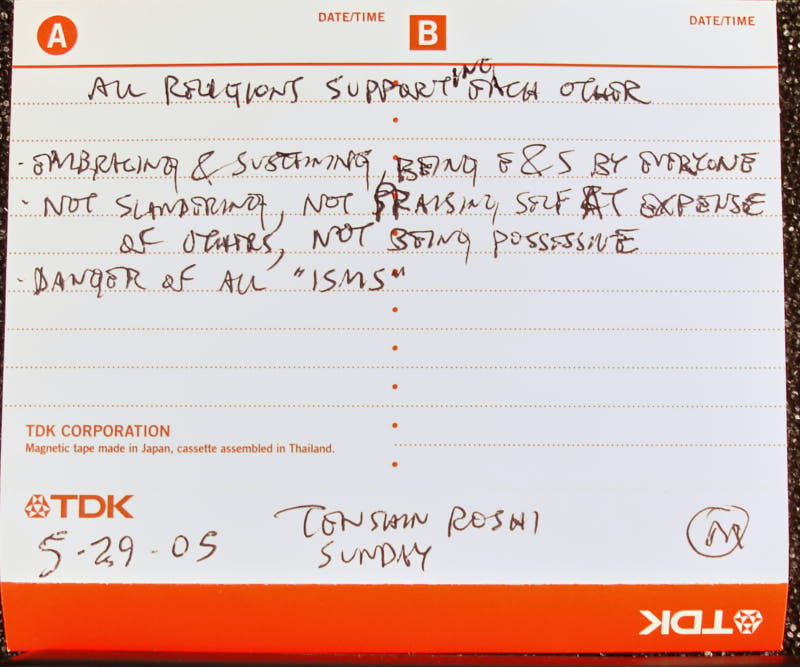 A DATE/TIME B DATE/TIME
ALL RELIGIONS SUPPORTING EACH OTHER
· EMBRACING & SUSTAINING, BEING E & S BY EVERYONE
· NOT SLANDERING, NOT PRAISING SELF AT EXPENSE
OF OTHERS, NOT BEING POSSESSIVE
· DANGER OF ALL "ISMS"
TDK CORPORATION
Magnetic tape made in Japan, cassette assembled in Thailand.
TDK
TENSHIN ROSHI
5-29-05
SUNDAY
M
TDK